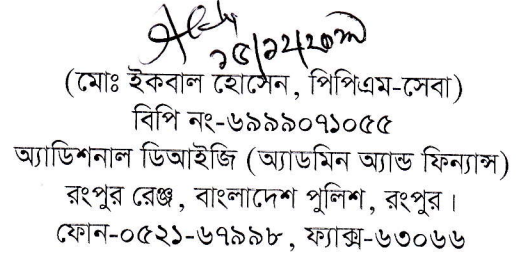 ২৫/১২/২০
(মোঃ ইকবাল হোসেন, পিপিএম-সেবা)
বিপি নং-৬৯৯৯০৭১০৫৫
অ্যাডিশনাল ডিআইজি (অ্যাডমিন অ্যান্ড ফিন্যান্স)
রংপুর রেঞ্জ, বাংলাদেশ পুলিশ, রংপুর।
ফোন-০৫২১-৬৭৯৯৮, ফ্যাক্স-৬৩০৬৬